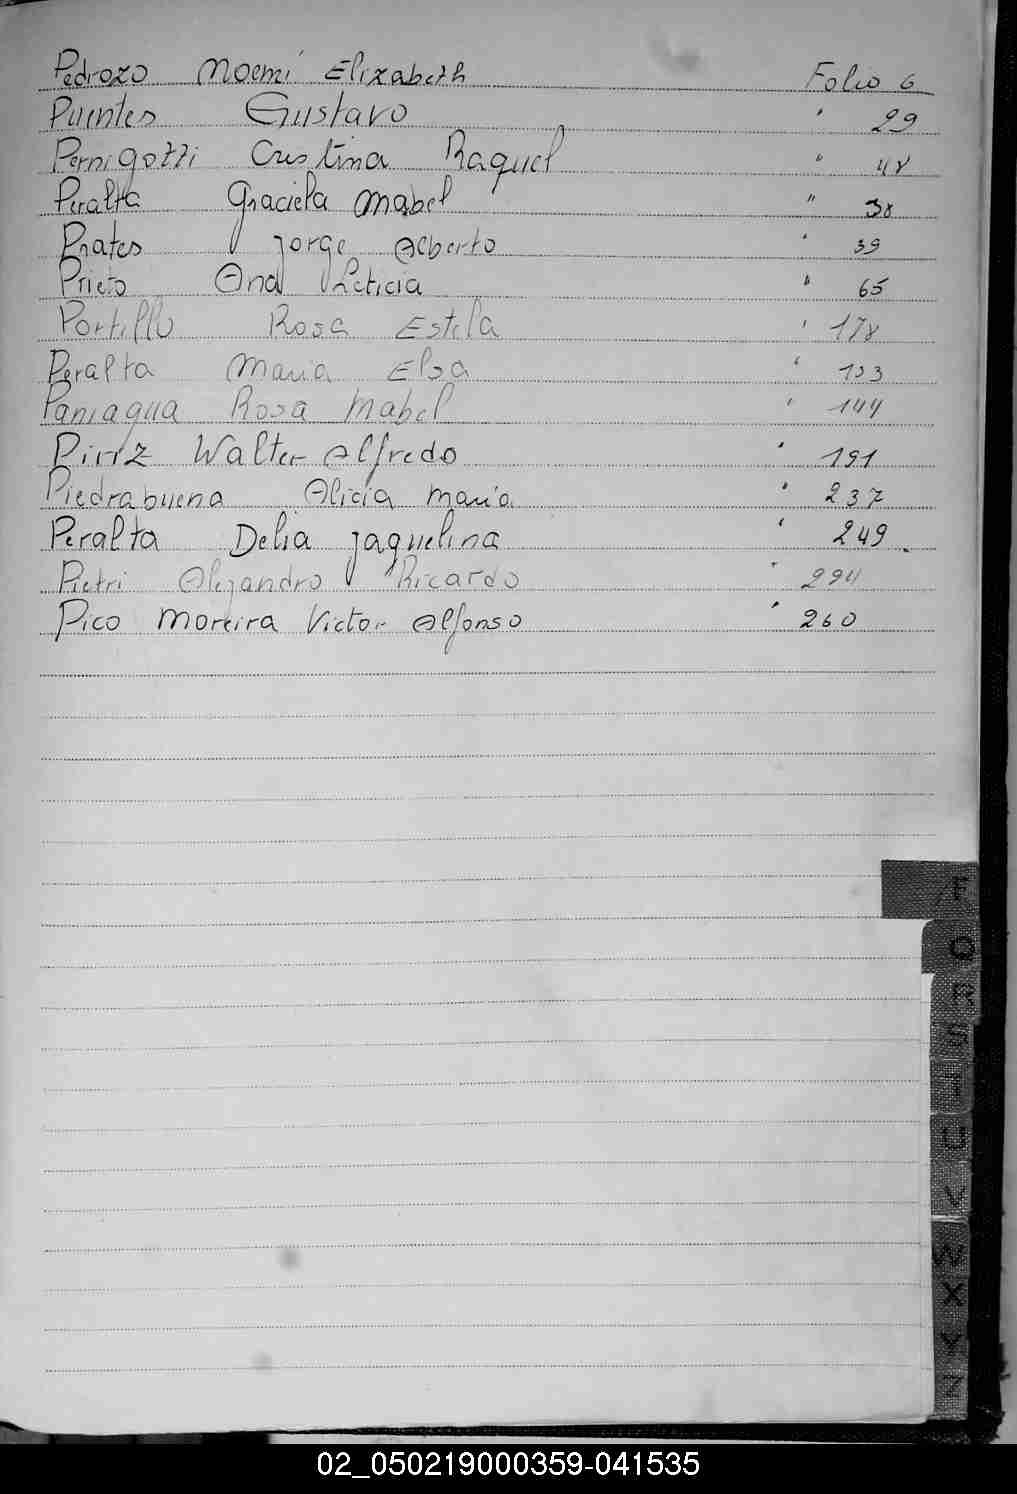 Pedrozo Noemí Elizabeth Folio 6
Puentes Gustavo " 29
Pernigotti Cristina Raquel " 48
Peralta Graciela Mabel " 38
Prates Jorge Alberto " 39
Prieto Ana Leticia " 65
Portillo Rosa Estela " 178
Peralta Maria Elsa " 133
Paniagua Rosa Mabel " 144
Piriz Walter Alfredo " 191
Piedrabuena Alicia Maria " 237
Peralta Delia Jaquelina " 249.
Pietri Alejandro Ricardo " 294
Pico Moreira Victor Alfonso " 260
Q
R
S
U
V
W
X
Y
Z
02_050219000359-041535